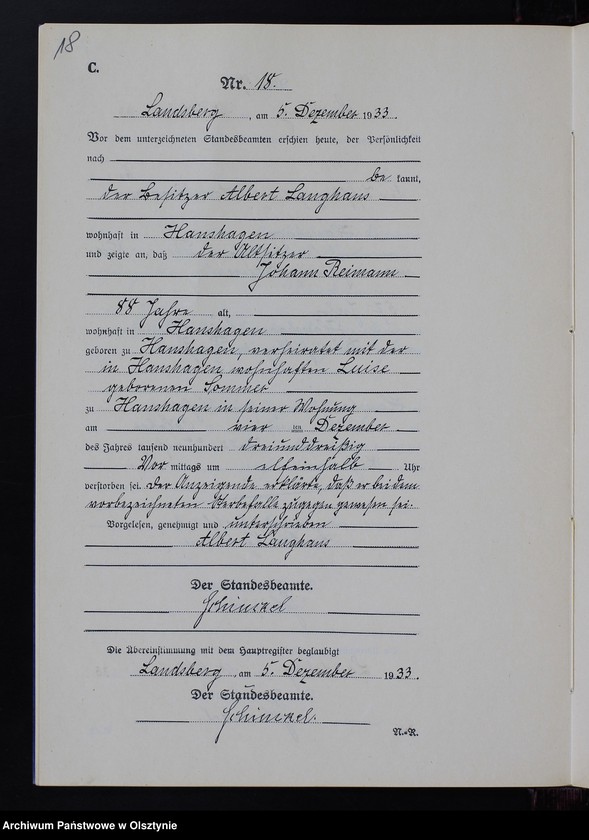 18
C.
Nr. 18.
Landsberg, am 5. Dezember 1933.
Vor dem unterzeichneten Standesbeamten erschien heute, der Persönlichkeit
nach
be kannt,
der Besitzer Albert Langhans
wohnhaft in Hanshagen
und zeigte an, daß der Altsitzer
Johann Reimann
88 Jahre alt,
wohnhaft in Hanshagen
geboren zu Hanshagen, verheiratet mit der
in Hanshagen wohnhaften Luise
geborenen Sommer
zu Hanshagen in seiner Wohnung
am vier ten Dezember
des Jahres tausend neunhundert dreiunddreißig
Vor mittags um elfeinhalb Uhr
verstorben sei. Der Anzeigende erklärte, daß er bei dem
vorbezeichneten Sterbefalle zugegen gewesen sei.
Vorgelesen, genehmigt und unterschrieben
Albert Langhans
Der Standesbeamte.
Schinkel
Die Übereinstimmung mit dem Hauptregister beglaubigt
Landsberg, am 5. Dezember 1933.
Der Standesbeamte.
Schinkel.
N.-R.
Archiwum Państwowe w Olsztynie